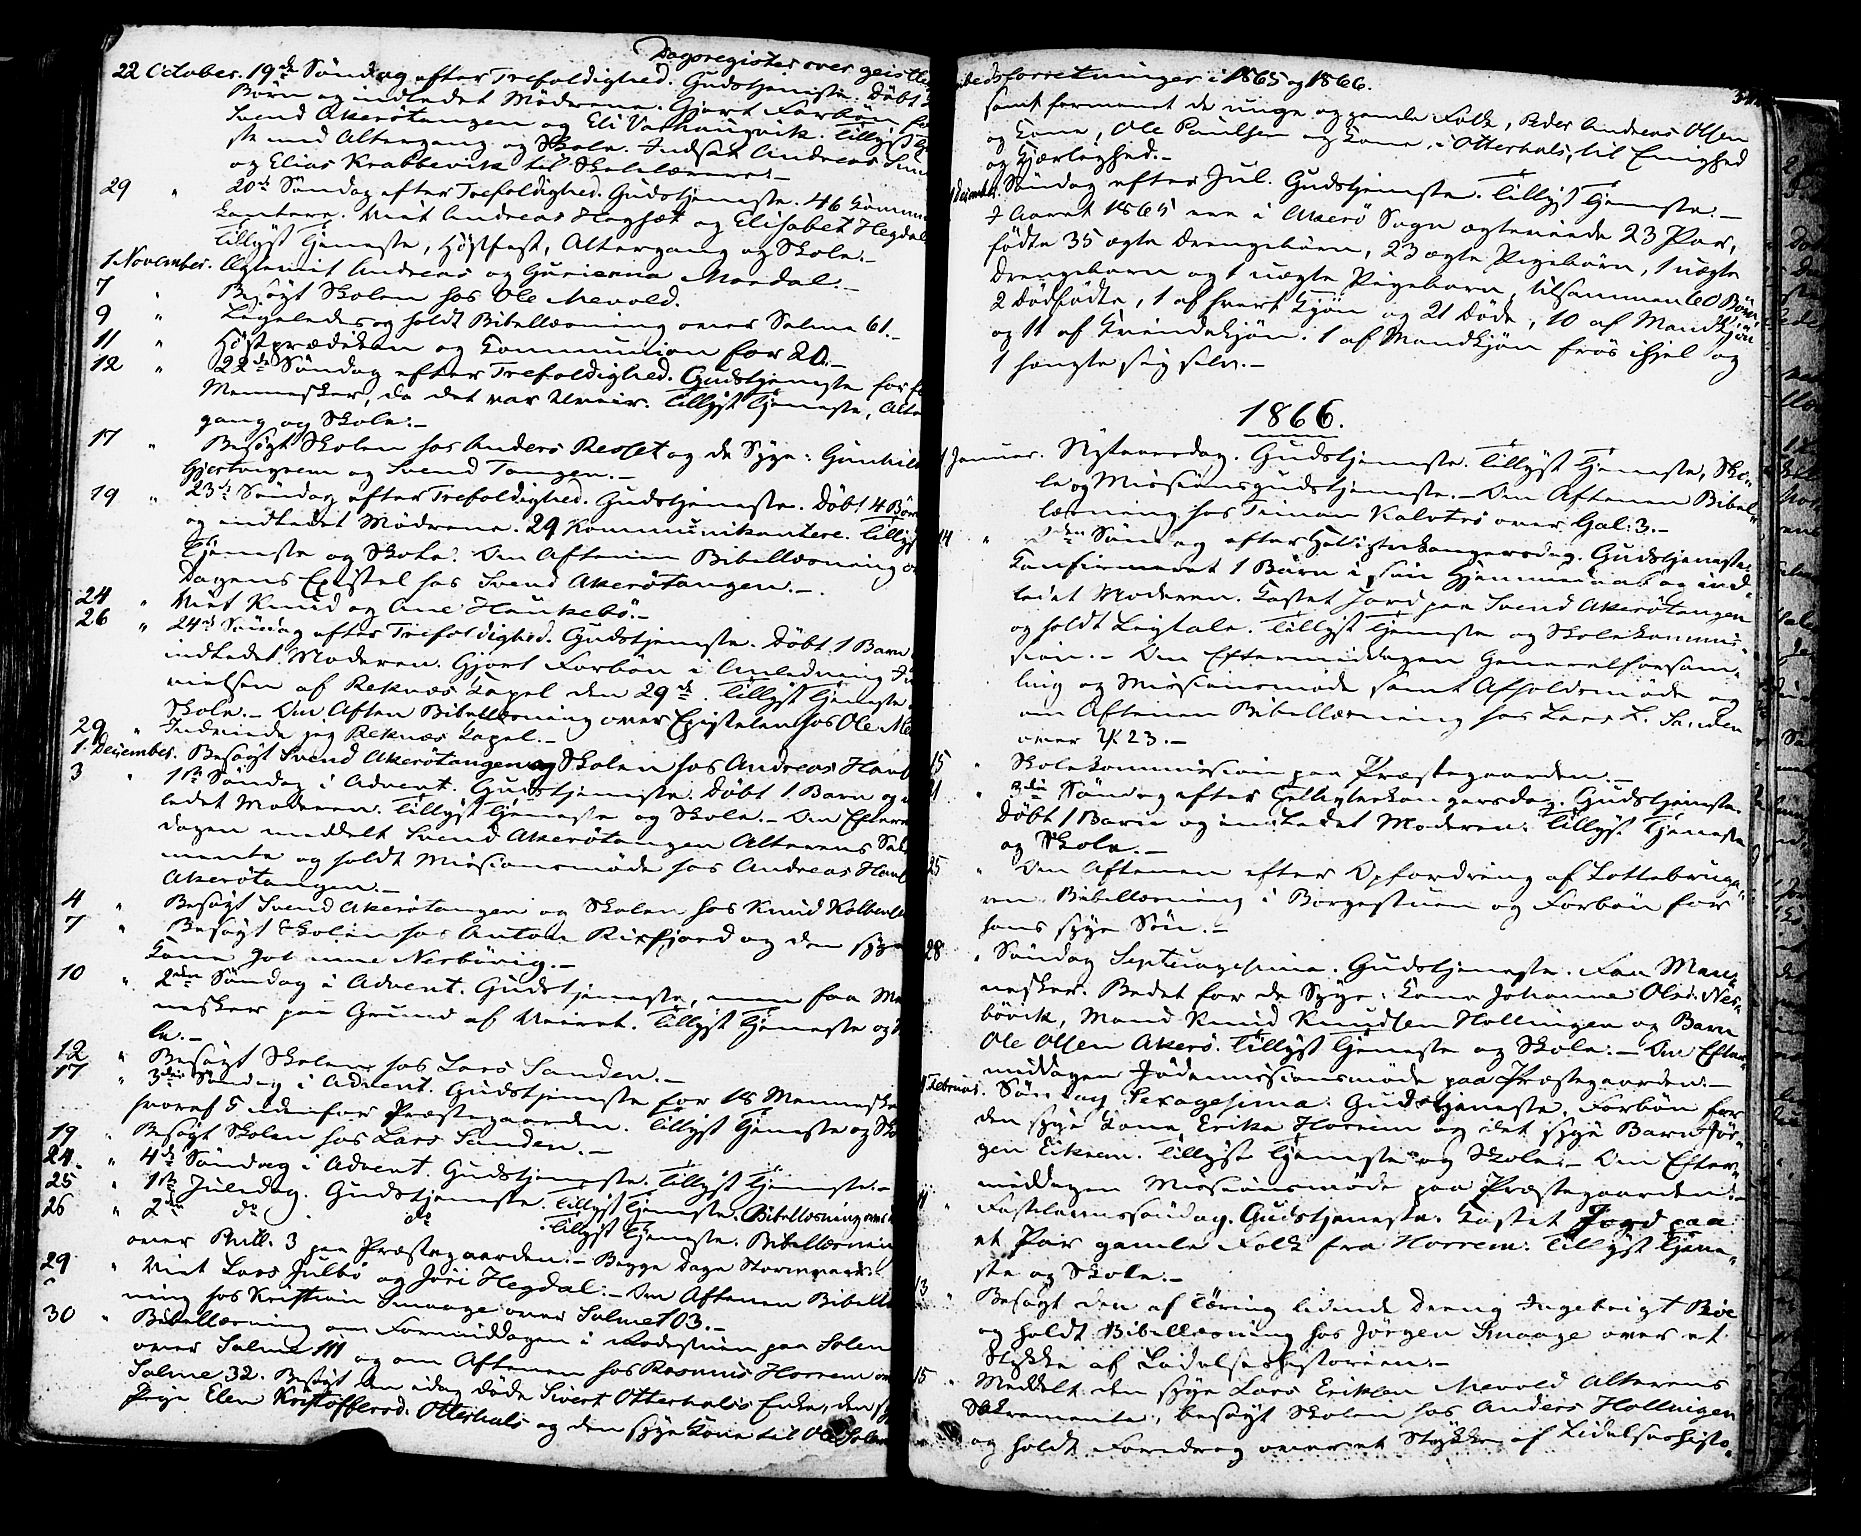 Dagsregister over geistli
22 October. 19de Søndag efter Trefoldighed. Gudstjeneste. Døbt
Børn og indledet Mødrene. Gjort Forbøn for
Svend Akerøtangen og Eli Varhaugvik. Tillyst Tjene
ste med Altergang og Skole. Indsat Andreas
og Elias Krabbevik til Skolelærere.-
29 " 20de Søndag efter Trefoldighed. Gudstjeneste. 46 Kommu
kantere. Viet Andreas Hagset og Elisabet Hegdal
Tillyst Tjeneste, Høstfest, Altergang og Skole.-
1 November. Ægteviet Andreas og Gurianna Mordal.-
7 " Besøgt Skolen hos Ole Mevold.
9 " Ligeledes og holdt Bibellæsning over Salme 61.-
11 " Høstprædiken og Communion for 20.-
12 " 22de Søndag efter Trefoldighed. Gudstjeneste for få
Mennesker, da det var Uveir. Tillyst Tjeneste, Alter
gang og Skole.-
17 " Besøgt Skolen hos Anders Resset og de Syge: Gunhild
Gjertvigrem og Svend Tangen.-
19 " 23de Søndag efter Trefoldighed. Gudstjeneste. Døbt 4 Børn
og indledet Mødrene. 29 Kommunikantere. Tillyst
Tjeneste og Skole. Om Aftenen Bibellæsning o
Dagens Epistel hos Svend Akerøtangen.-
24 " Viet Knud og Ane Haukebø.-
26 " 24de Søndag efter Trefoldighed. Gudstjeneste. Døbt 1 Barn
indledet Moderen. Gjort Forbøn i Anledning
vielsen af Reknæs Capel den 29de. Tillyst Tjeneste.
Skole.- Om Aften Bibellæsning over Epistelen hos Ole Me
29 " Indviede jeg Reknæs Capel.-
1. December. Besøgt Svend Akerøtangen og Skolen hos Andreas Hauk
3 " 1ste Søndag i Advent. Gudstjeneste. Døbt 1 Barn og
ledet Moderen. Tillyst Tjeneste og Skole.- Om Efterm
dagen meddelt Svend Akerøtangen Alterens Sa
mente og holdt Missionsmøde hos Andreas Hauk
Akerøtangen.-
4 " Besøgt Svend Akerøtangen og Skolen hos Knud Kolbens
7 " Besøgt Skolen hos Anton Rixfjord og den syge
Kone Johanne Nesbøvig.-
10 " 2den Søndag i Advent. Gudstjeneste, men faa Me
nesker paa Grund af Veiret. Tillyst Tjeneste og
le.-
12 " Besøgt Skolen hos Lars Sanden.-
17 " 3die Søndag i Advent. Gudstjeneste for 18 Mennesker
hvoraf 5 udenfor Præstegaarden. Tillyst Tjeneste og Sko
19 " Besøgt Skolen hos Lars Sanden.-
24. " 4de Søndag i Advent. Gudstjeneste. Tillyst Tjeneste.-
25 " 1ste Juledag. Gudstjeneste. Tillyst Tjeneste. Bibellæsning om
26 " 2den do do Tillyst Tjeneste. Bibellæsnin
over 3 paa Præstegaarden.- Begge Dage Stormveir.
29 " Viet Lars Julbø og Jøri Hegdal.- Om Aftenen Bibellæs
ning hos Kristian Smaage over Salme 103.-
30 " Bibellæsning om Formiddagen i paa Solem
over Salme 111 og om Aftenen hos Rasmus Horrem over
Salme 32. Besøgt den idag døde Sivert Otterhals Enke, den sy
Pige Elen Kristoffersd. Otterhals og den syge Kone til Ole Solem
bedsforretninger i 1865 og 1866.
samt formanet de unge og gamle Folk, Peder Andreas Olsen
og Kone, Ole Paulsen og Kone i Otterhals, til Enighed
og Kjærlighed.-
31 December. Søndag efter Jul. Gudstjeneste. Tillyst Tjeneste.-
I Aaret 1865 ere i Akerø Sogn ægteviede 23 Par,
fødte 35 ægte Drengebørn, 23 ægte Pigebørn, 1 uægte
Drengebarn og 1 uægte Pigebarn, tilsammen 60 Børn,
2 Dødfødte, 1 af hvert Kjøn og 21 Døde, 10 af Mandkjøn
og 11 af Kvindekjøn. 1 af Mandkjøn frøs ihjel og
1 hængte sig selv.-
1866.
1 Januar. Nytaarsdag. Gudstjeneste. Tillyst Tjeneste, Sko-
le og Missionsgudstjeneste.- Om Aftenen Bibel-
læsning hos Kalotes over Gal: 3.-
14 " 2den Søndag efter Helligtrekongersdag. Gudstjeneste.
Konfirmeret 1 Børn i sin Hjemmedaab og ind-
ledet Moderen. Kastet Jord paa Svend Akerøtangen
og holdt Ligtale. Tillyst Tjeneste og Skolekommis-
sion.- Om Eftermiddagen Generalforsam-
ling og Missionsmøde samt Afholdsmøde og
om Aftenen Bibellæsning hos Lars L. Sanden
over ψ. 23.-
15 " Skolekommission paa Præstegaarden.-
21 " 3die Søndag efter Helligtrekongersdag. Gudstjeneste.
Døbt 1 Barn og indledet Moderen. Tillyst Tjeneste
og Skole.-
25 " Om Aftenen efter Opfordring af Lottebruge-
ren Bibellæsning i Borgestuen og Forbøn for
hans syge Søn.-
28 " Søndag Septuagesima. Gudstjeneste. Faa Men-
nesker. Bedet for de Syge: Kone Johanne Olsd. Nes-
bøvik, Mand Knud Knudsen Hollingen og Barn
Ole Olsen Akerø. Tillyst Tjeneste og Skole.- Om Efter-
middagen Jødemissionsmøde paa Præstegaarden.-
4 Februar. Søndag Sexagesima. Gudstjeneste. Forbøn for
den syge Kone Erika Horrem og det syge Barn Jør-
gen Eikrem. Tillyst Tjeneste og Skole.- Om Efter-
middagen Missionsmøde paa Præstegaarden.-
11 " Fastelavnssøndag. Gudstjeneste. Kastet Jord paa
et Par gamle Folk fra Horrem. Tillyst Tjene-
ste og Skole.-
13 " Besøgt den af Tæring lidende Dreng Ingebrigt Bøe
og holdt Bibellæsning hos Jørgen Smaage over et
Stykke af Lidelseshistorien.-
15 " Meddelt den syge Lars Eriksen Mevold Alterens
Sakramente, besøgt Skolen hos Anders Hollingen
og holdt Foredrag over et Stykke af Lidelseshisto-